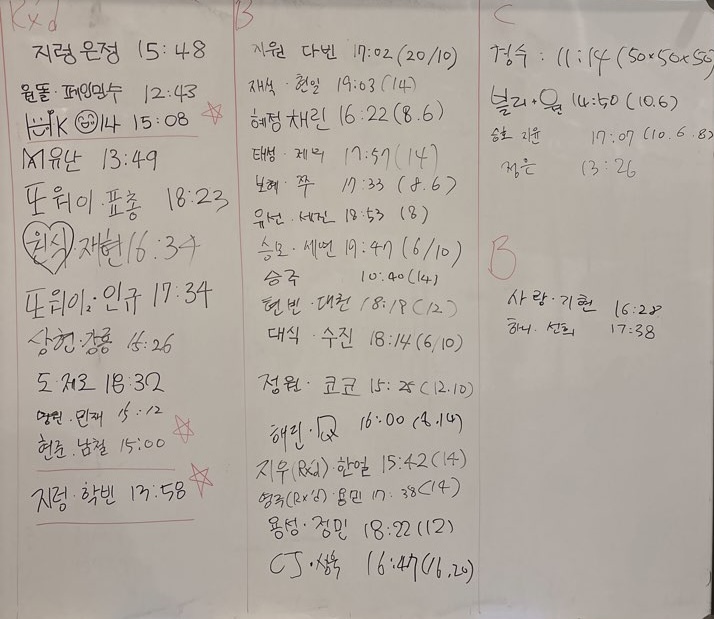 Rx'd
지령 은정 15:48
원똘·페인민수 12:43
K 14 15:08
유난 13:49
또위이·표총 18:23
원식 재현 16:34
또위이2·인규 17:34
상현·강룡 15:26
도·제로 18:32
민재 15:12
현준·남철 15:00
지령·학빈 13:58
B
지원 다빈 17:02 (20/10)
재식·현일 19:03 (14)
혜정 채린 16:22 (8.6)
태성· 17:57 (14)
보혜·쭈 17:33 (8.6)
유선·세진 18:53 (8)
승모·세연 19:47 (6/10)
승국 10:40 (14)
현빈·대헌 18:19 (12)
대식·수진 18:14 (6/10)
정원·코코 15:25 (12.10)
해린· 16:00 (8.14)
지우(Rx'd)·한일 15:42 (14)
영국(Rx'd)·용민 17:38 (14)
용성·정민 18:22 (12)
CJ·상욱 16:47 (16.20)
C
경수 : 11:14 (50x50x50)
블리· 14:50 (10.6)
승호 지윤 17:07 (10.6.8)
정은 13:26
B
사랑·기현 16:28
하니·선희 17:38